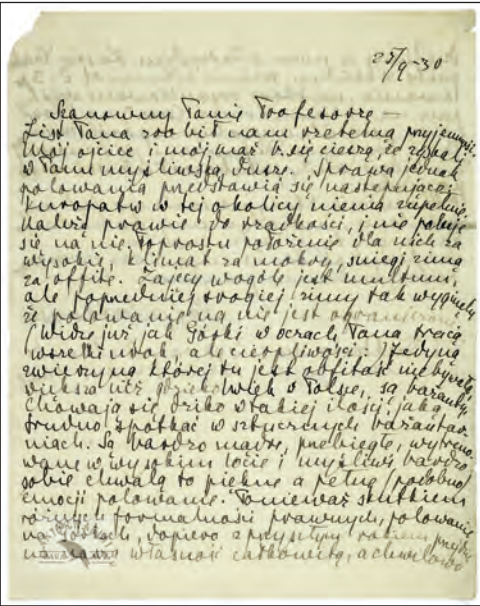 25/9-30
Szanowny Panie Profesorze –
List Pana zrobił nam rzetelną przyjemność.
Mój ojciec i mój mąż b. się cieszą, że zyskali
w Panu myśliwską duszę. Sprawa jednak
polowania przedstawia się następująco:
Kuropatw w tej okolicy niema zupełnie.
Należą prawie do rzadkości, i nie poluje
się na nie. Poprostu położenie dla nich za
wysokie, klimat za mokry, śniegi zimą
za obfite. Zajęcy wogóle jest multum,
ale poprzedniej srogiej zimy tak wyginęły
że polowanie na nie jest ograniczone
(Widzę już jak Górki w oczach Pana tracą
wszelki urok, ale cierpliwości:) Jedyną
zwierzyną której tu jest obfitość niebywała,
większa niż gdziekolwiek w Polsce, są bażanty.
Chowają się dziko w takiej ilości, jaką
trudno spotkać w sztucznych bażantar-
niach. Są bardzo mądre, przebiegłe, wytreno-
wane w wysokim locie i myśliwi bardzo
sobie chwalą to piękne a pełne (podobno)
emocji polowanie. Ponieważ skutkiem
różnych formalności prawnych, polowanie
na dopiero z przyszłym rokiem
własność całkowitą, a chwilowo